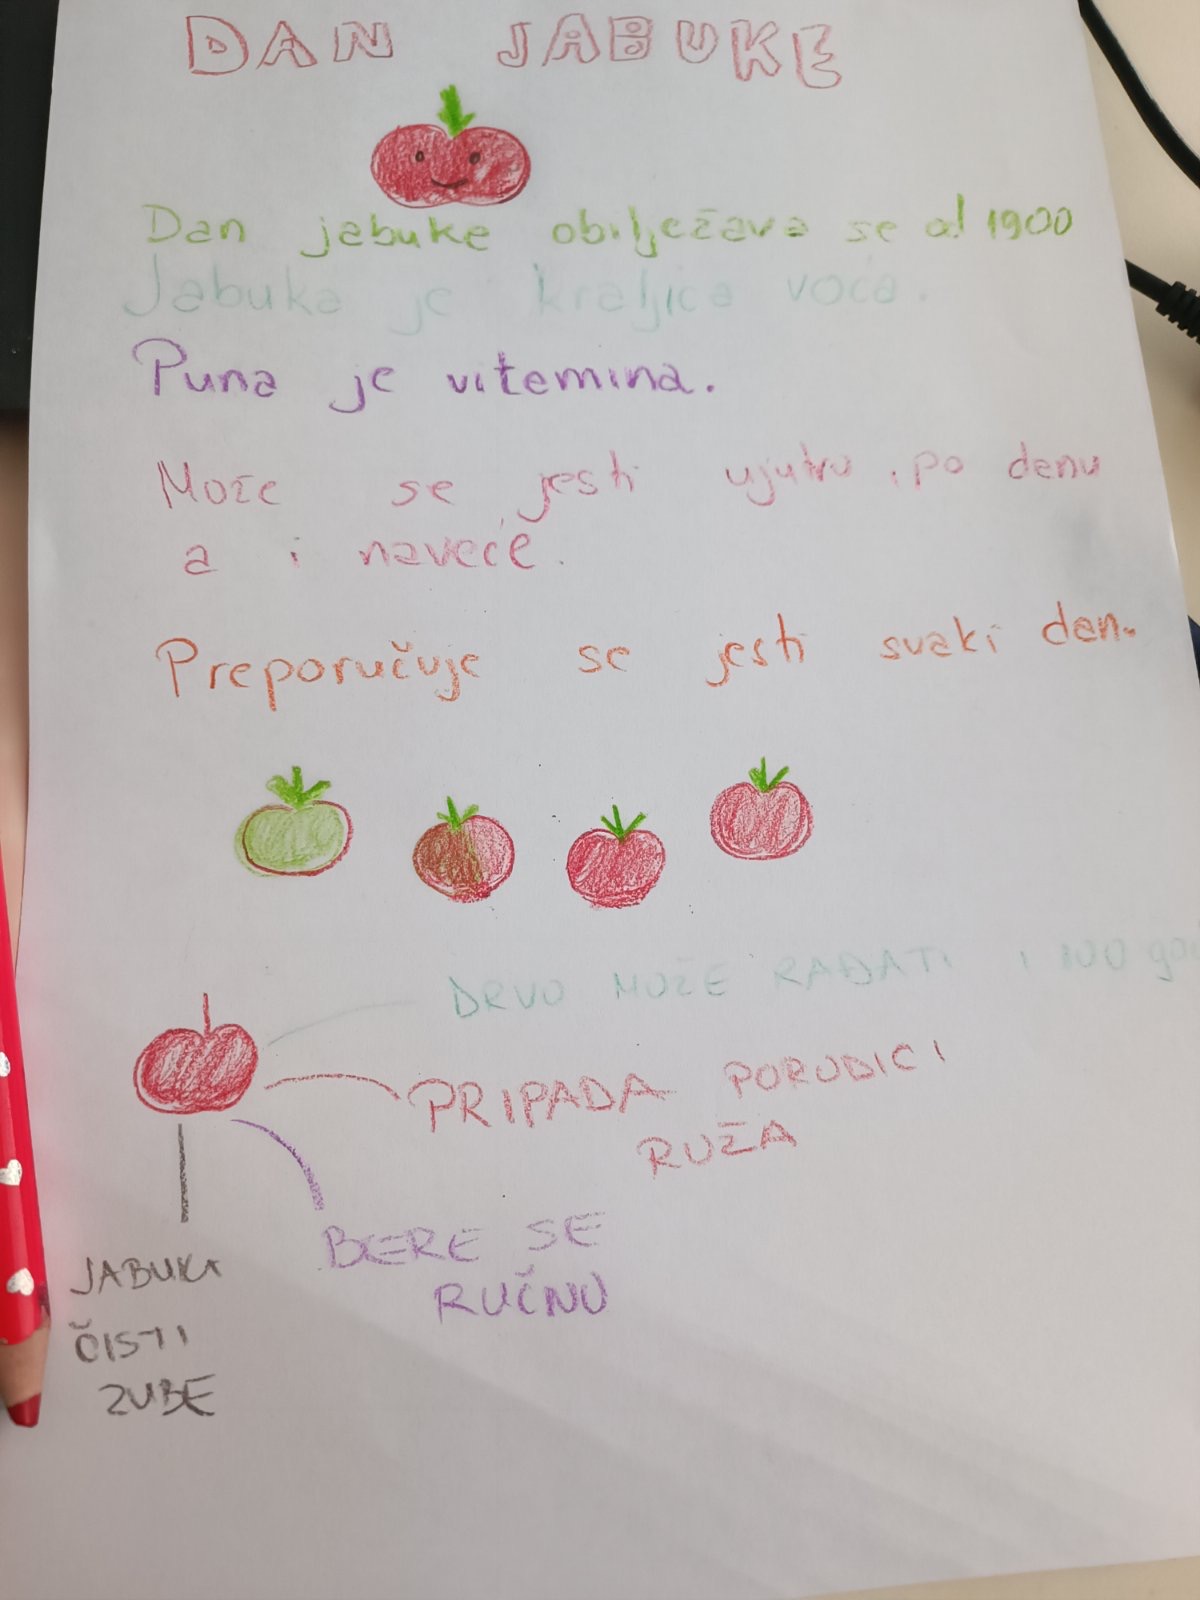 DAN JABUKE
Dan jabuke obilježava se od 1900
Jabuka je kraljica voća.
Puna je vitamina.
Može se jesti ujutru, po danu
a i naveče.
Preporučuje se jesti svaki dan.
DRVO MOŽE RAĐATI I 100 god
PRIPADA PORODICI
RUŽA
BERE SE
RUČNO
JABUKA
ČISTI
ZUBE